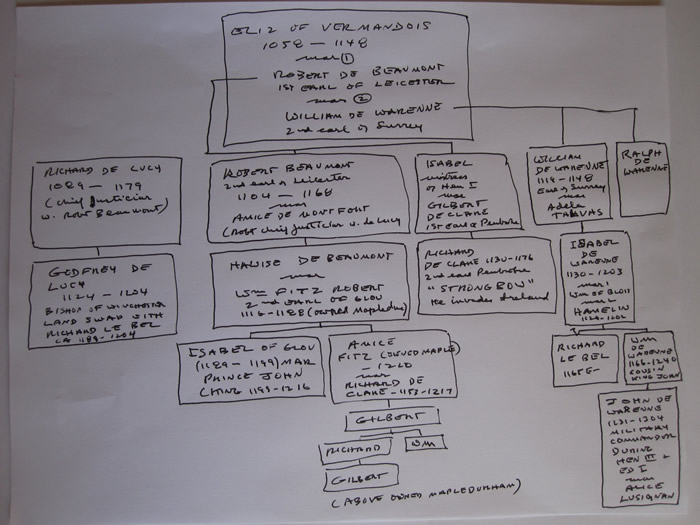 ELIZ OF VERMANDOIS
1058 - 1148
mar ①
ROBERT DE BEAUMONT
1ST EARL OF LEICESTER
mar ②
WILLIAM DE WARENNE
2nd earl of Surrey
RICHARD DE LUCY
1089 - 1179
(Chief Justiciar
w. Robt Beaumont)
ROBERT BEAUMONT
2nd earl of Leicester
1104 - 1168
mar
AMICE DE MONTFORT
(Robt chief justiciar w. de Lucy)
ISABEL
mistress
of Hen I
mar
GILBERT
DE CLARE
1ST Earl of Pembroke
WILLIAM
DE WARENNE
1119 - 1148
Earl of Surrey
mar
Adela
TALVAS
RALPH
DE WARENNE
GODFREY DE
LUCY
1124 - 1204
BISHOP OF WINCHESTER
LAND SWAP WITH
RICHARD LE BEL
CA 1189-1204
HAWISE DE BEAUMONT
mar
Wm FITZ ROBERT
2nd EARL OF GLOU
1116-1188 (owned Mapledur)
RICHARD
DE CLARE 1130-1176
2nd earl Pembroke
"STRONGBOW"
He invades Ireland
ISABEL
DE
WARENNE
1130-1203
mar 1
Wm OF BLOIS
mar 2
HAMELIN
ISABEL OF GLOU
(1189 - 1199) MAR
PRINCE JOHN
(KING 1199-1216
AMICE
FITZ (OWNED MAPLE)
- 1220
mar
RICHARD DE
CLARE - 1153-1217
RICHARD
LE BEL
1165-
Wm
DE
WARENNE
1166-1240
COUSIN
KING JOHN
GILBERT
RICHARD
Wm
GILBERT
(ABOVE OWNED MAPLEDURHAM)
JOHN DE
WARENNE
1231-1304
MILITARY
COMMANDER
DURING
HEN III +
ED I
mar
ALICE
LUSIGNAN